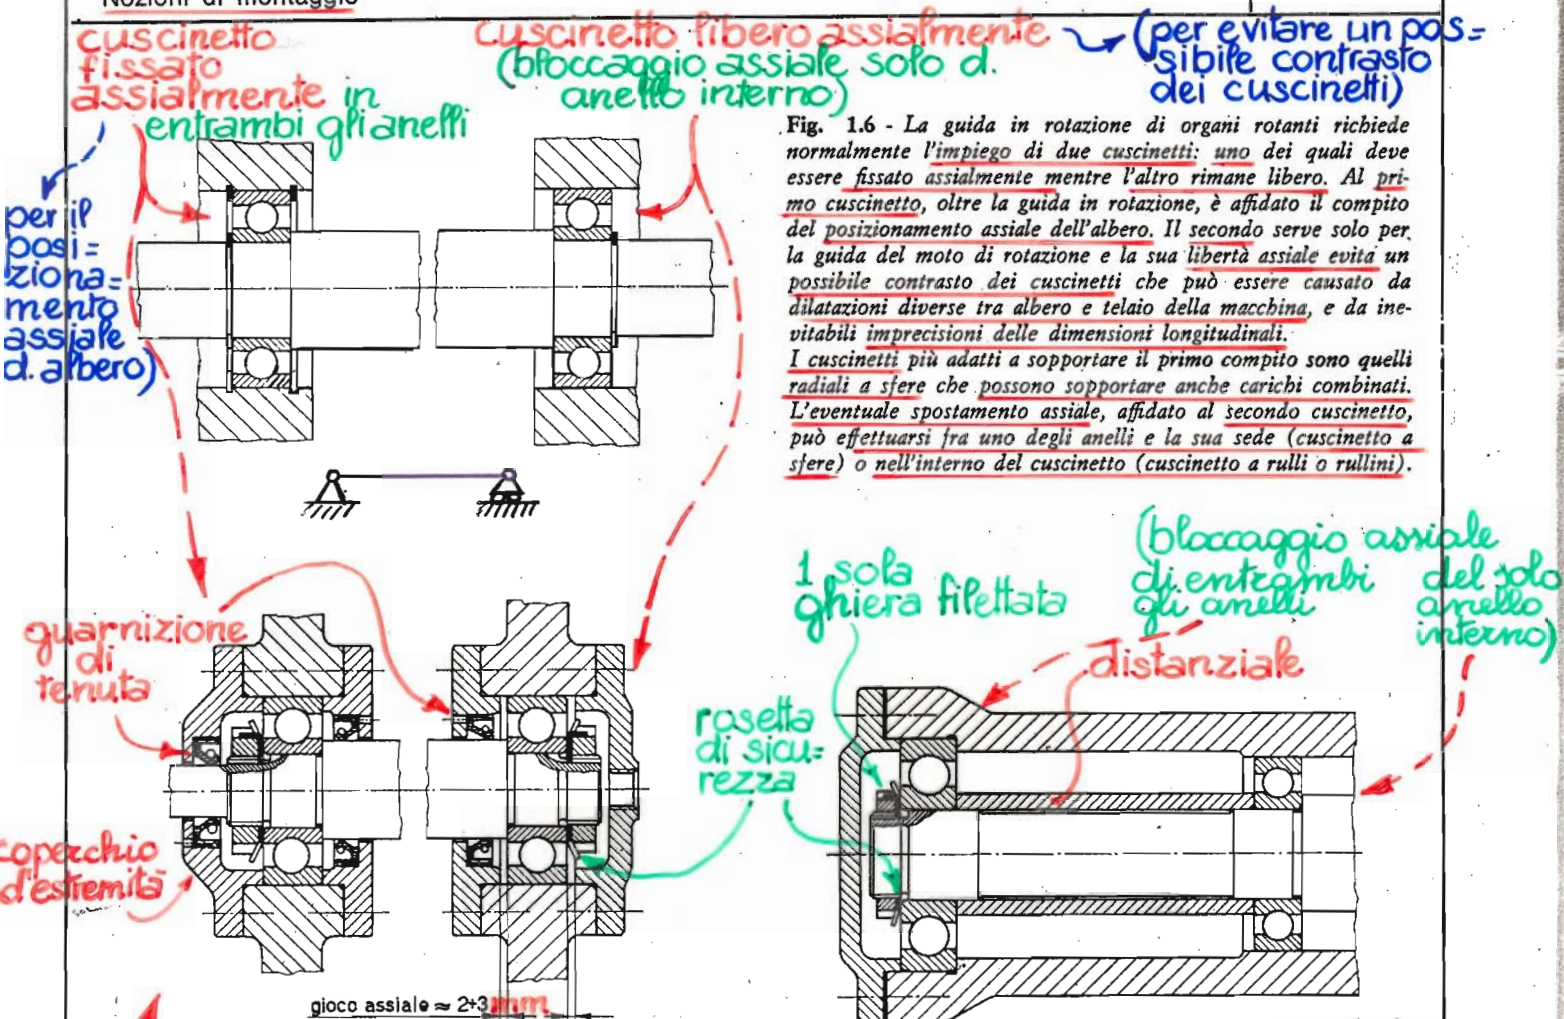 Nozioni di montaggio
cuscinetto
fissato
assialmente in
entrambi gli anelli
cuscinetto libero assialmente
(bloccaggio assiale solo d.
anello interno)
(per evitare un pos=
sibile contrasto
dei cuscinetti)
per il
posi=
ziona=
mento
assiale
d. albero)
Fig. 1.6 - La guida in rotazione di organi rotanti richiede
normalmente l'impiego di due cuscinetti: uno dei quali deve
essere fissato assialmente mentre l'altro rimane libero. Al pri-
mo cuscinetto, oltre la guida in rotazione, è affidato il compito
del posizionamento assiale dell'albero. Il secondo serve solo per
la guida del moto di rotazione e la sua libertà assiale evita un
possibile contrasto dei cuscinetti che può essere causato da
dilatazioni diverse tra albero e telaio della macchina, e da ine-
vitabili imprecisioni delle dimensioni longitudinali.
I cuscinetti più adatti a sopportare il primo compito sono quelli
radiali a sfere che possono sopportare anche carichi combinati.
L'eventuale spostamento assiale, affidato al secondo cuscinetto,
può effettuarsi fra uno degli anelli e la sua sede (cuscinetto a
sfere) o nell'interno del cuscinetto (cuscinetto a rulli o rullini).
guarnizione
di
tenuta
coperchio
d'estremità
rosetta
di sicu=
rezza
1 sola
ghiera filettata
(bloccaggio assiale
di entrambi
gli anelli
del solo
anello
interno)
distanziale
gioco assiale ≈ 2÷3 mm